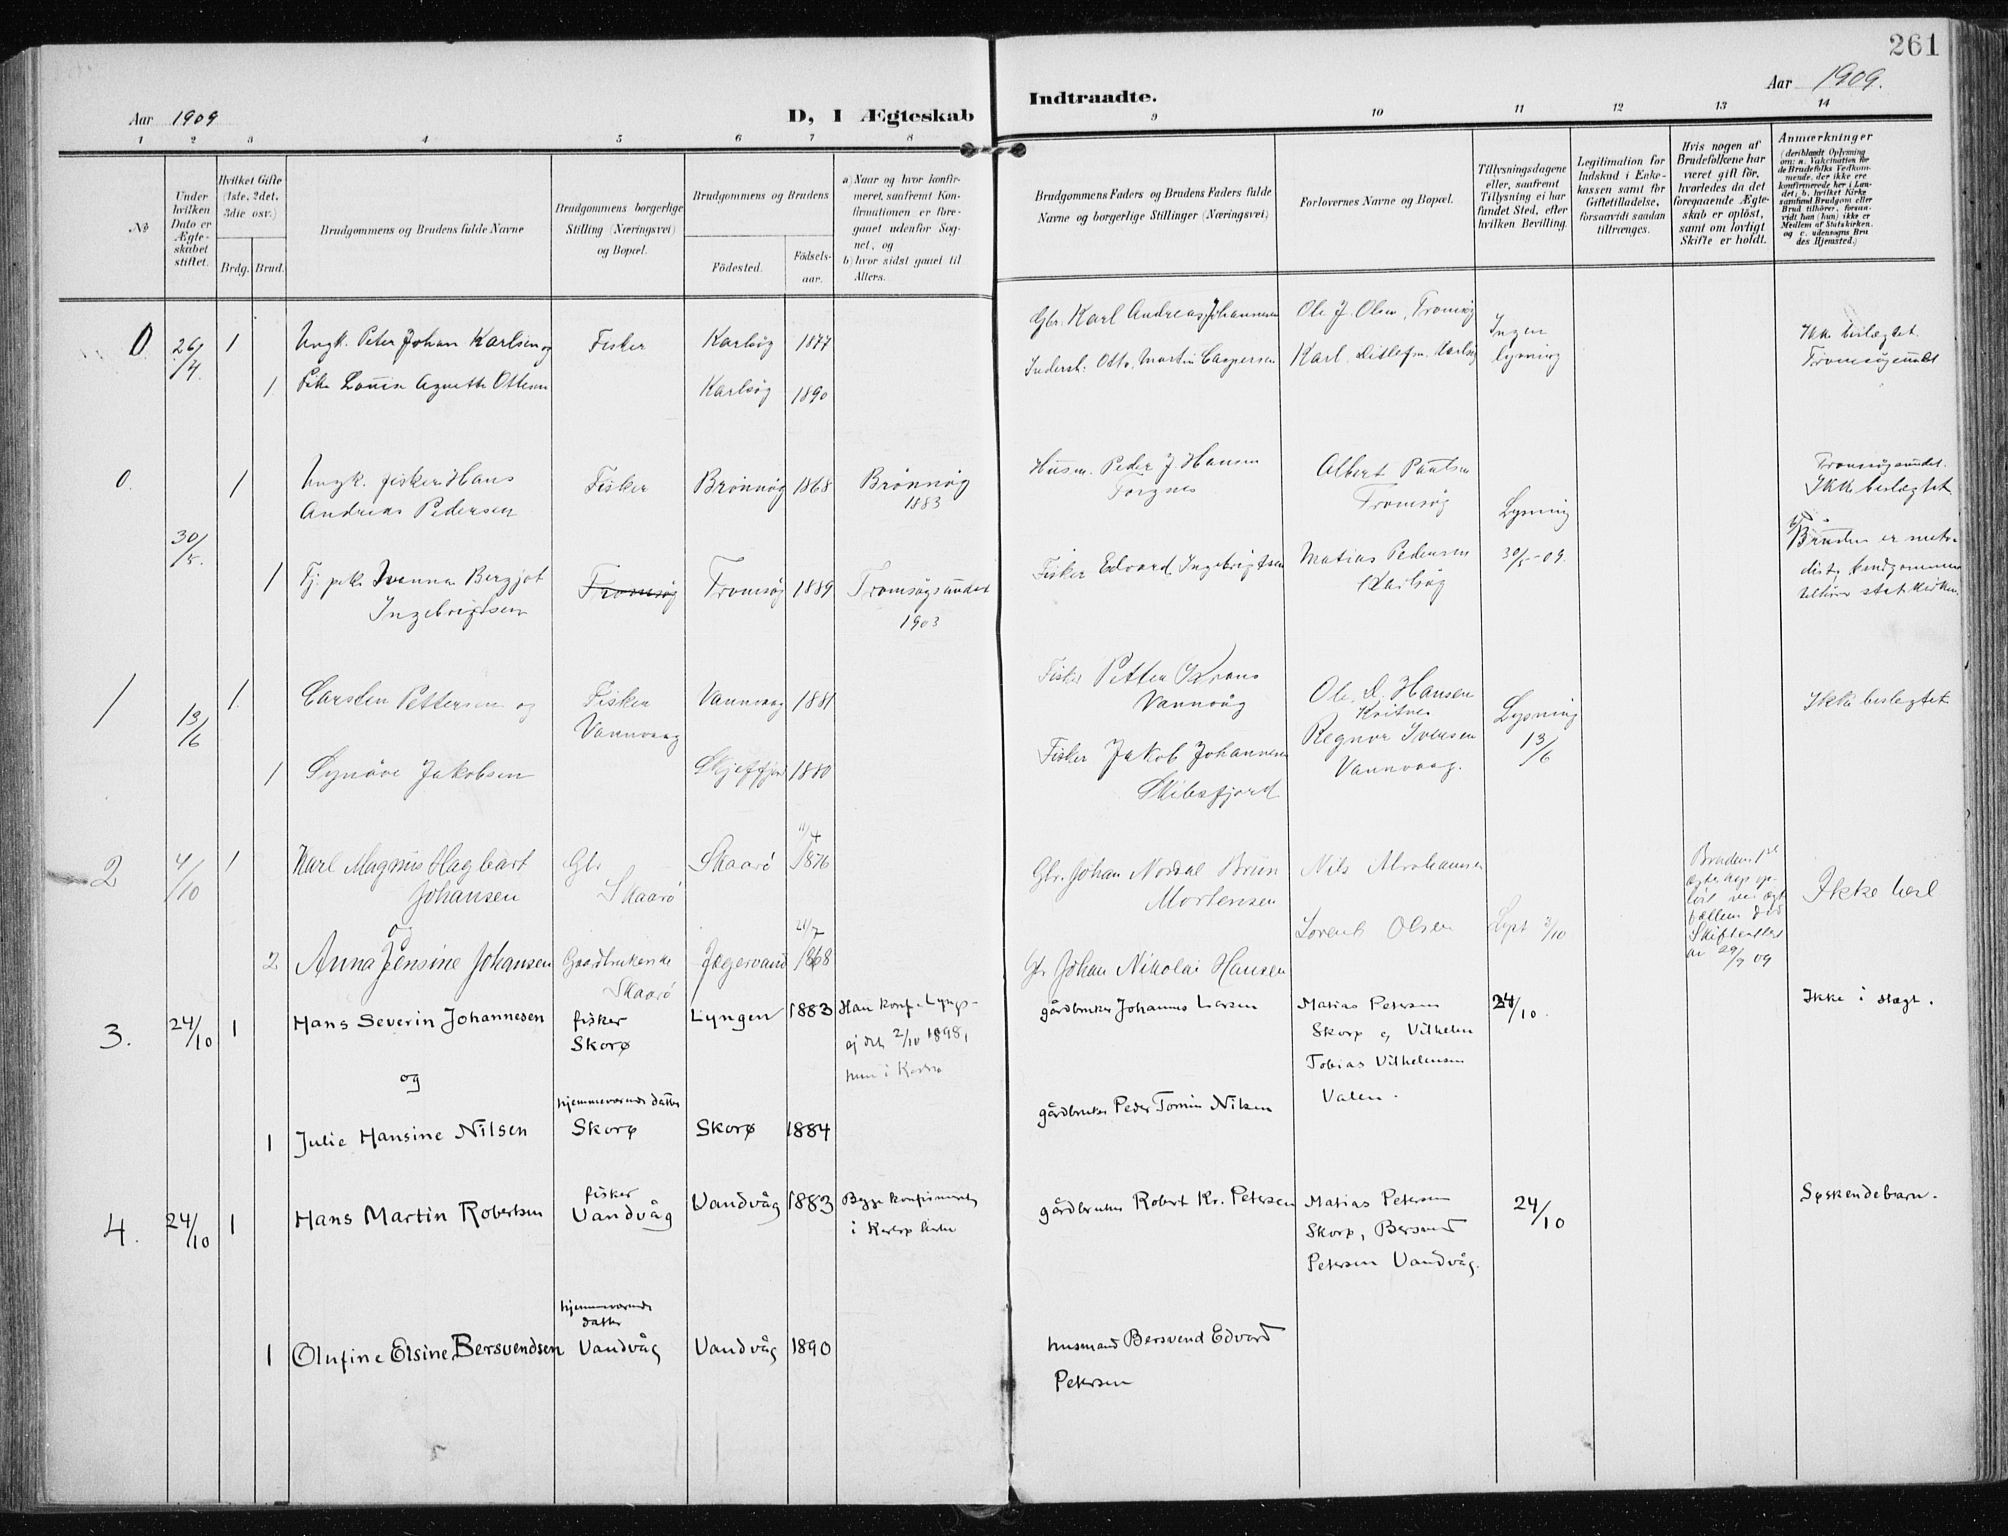 261
Aar 1909
D, I Ægteskab
Indtraadte.
Aar 1909.
1 2 3 4 5 6 7 8 9 10 11 12 13 14
No
Under hvilken Dato er Ægteskabet stiftet.
Hvilket Gifte (1ste, 2det, 3die osv.)
Brdg. Brud.
Brudgommens og Brudens fulde Navne
Brudgommens borgerlige Stilling (Næringsvei) og Bopæl.
Brudgommens og Brudens
Fødested.
Fødselsaar.
a) Naar og hvor konfirmeret, saafremt Konfirmationen er foregaaet udenfor Sognet, og
b) hvor sidst gaaet til Alters.
Brudgommens Faders og Brudens Faders fulde Navne og borgerlige Stillinger (Næringsvei)
Forlovernes Navne og Bopæl.
Tillysningsdagene eller, saafremt Tillysning ei har fundet Sted, efter hvilken Bevilling.
Legitimation for Indskud i Enkekassen samt for Giftetilladelse, forsaavidt saadan tiltrænges.
Hvis nogen af Brudefolkene har været gift før, hvorledes da det foregaaende Ægteskab er opløst, samt om lovligt Skifte er holdt.
Anmærkninger
(deriblandt Oplysning om: a. Vakcination for de Brudefolks Vedkommende, der ikke ere konfirmerede her i Landet; b. hvilket Kirkesamfund Brudgom eller Brud tilhører, forsaavidt han (hun) ikke er Medlem af Statskirken, og c. udensogns Brudes Hjemsted.)
0 26/4 1 Ungk. Peter Johan Karlsen og Fisker Karlsøy 1877
Gbr. Karl Andreas Johannesen Ole J. Olsen, Tromsø Ingen lysning Ikke beslægtet. Tromsøsundet
1 Pike Agnethe Ottesen Karlsøy 1890
Inderst. Otto Martin Caspersen Karl Ditlefsen, Karlsøy
0. 30/5. 1 Ungk. fisker Hans
Andreas Pedersen Fisker Brønnøy 1868 Brønnøy
1883
Husm. Peder J. Hansen
Torgnes
Albert Paulsen
Tromsøy
Lysning
30/5-09.
Tromsøysundet.
Ikke beslegtet
1 Tj. pike Ivanna Bergjot
Ingebrigtsen Tromsøy Tromsøy 1889 Tromsøysundet
1903
Fisker Edvard Ingebrigtsen Matias Pedersen
Karlsøy
Bruden er metodist, brudgommen
tilhører statskirken.
1 13/6 1. Carsten Pettersen og Fisker
Vannvaag Vannvaag 1881
Fisker Petter
Vannvåg
Ole D. Hansen
Kvitnes
Lysning
13/6
Ikke beslegtet
1 Synöve Jakobsen Skjeffjor 1880
Fisker Jakob Johannesen
Skibsfjord
Regnor Ivensen
Vannvaag.
2 4/10 1 Karl Magnus Hagbart
Johansen Gbr
Skaarø Skaarø 11/4 1876
Gbr. Johan Nordal Brun
Mortensen
Nils Abrahamsen
Brudens 1ste
ægteskap opløst ved ægtefællens død
Skifteattest
av 29/9 09
Ikke besl
og
2 Anna Jensine Johansen Gaardbrukerske
Skaarø Jægervand 21/7 1868
Gbr Johan Nikolai Hansen
Lorents Olsen Lyst 3/10
3. 24/10 1 Hans Severin Johannesen fisker
Skorø Lyngen 1883 Han konf. i Lyngsejdet 2/10 1898,
hun i Karlsø
gårdbruker Johannes Larsen
Matias Petersen
Skorø og Vilhelm
Tobias Vilhelmsen
Valen.
24/10.
Ikke i slægt.
og
1 Julie Hansine Nilsen hjemmeværende datter
Skorø Skorø 1884
gårdbruker Peder Tomin Nilsen
4. 24/10 1 Hans Martin Robertsen fisker
Vandvåg Vandvåg 1883 Begge konfirmeret
i Karlsø kirke
gårdbruker Robert Kr. Petersen
Matias Petersen
Skorø, Bersvend
Petersen Vandvåg.
24/10
Søskendebarn.
1 Olufine Elsine Bersvendsen hjemmeværende
datter
Vandvåg Vandvåg 1890
husmand Bersvend Edvard
Petersen